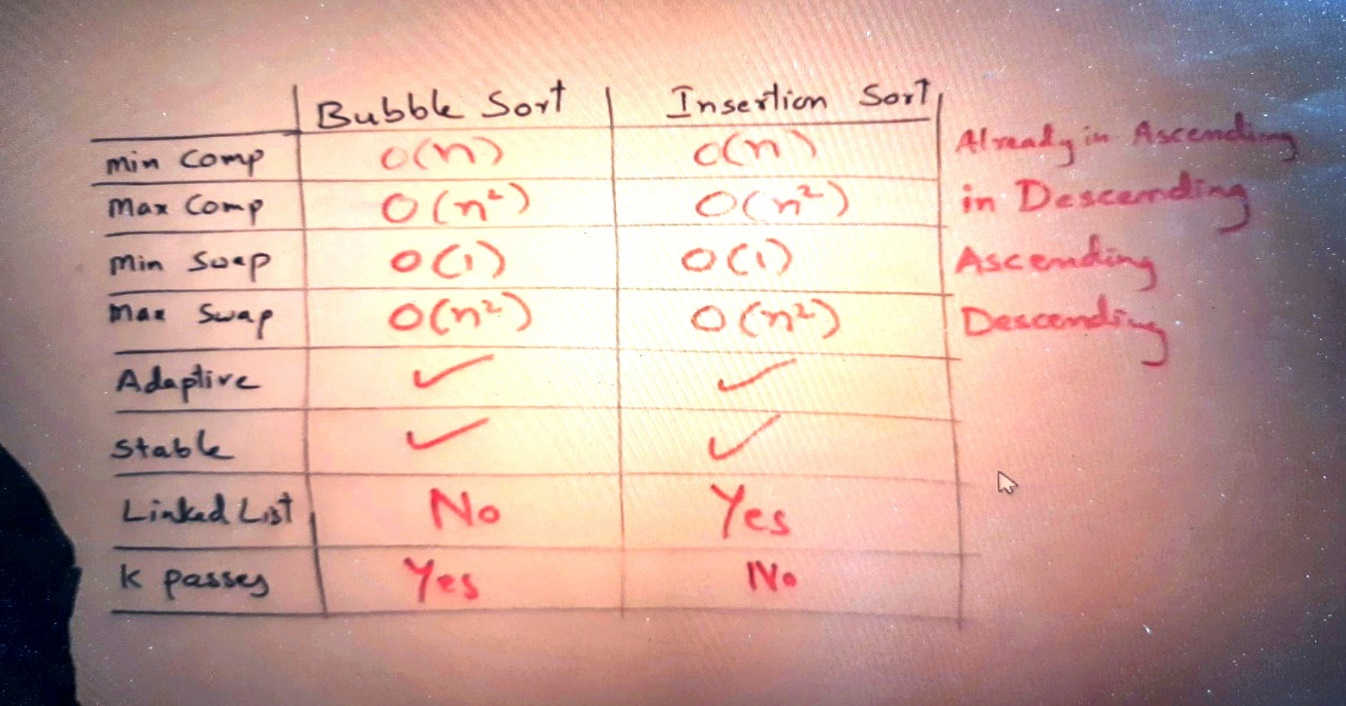 Bubble Sort Insertion Sort
Min Comp O(n) O(n) Already in Ascending
Max Comp O(n²) O(n²) in Descending
Min Swap O(1) O(1) Ascending
Max Swap O(n²) O(n²) Descending
Adaptive ✓ ✓
Stable ✓ ✓
Linked List No Yes
K passes Yes No